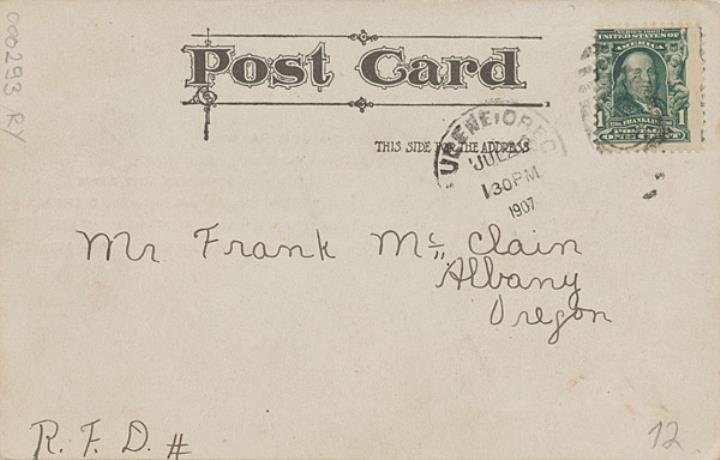 Post Card
THIS SIDE FOR THE ADDRESS
SERIES 1902
UNITED STATES OF
AMERICA
1 FRANKLIN 1
POSTAGE
ONE CENT
UGENE, OREG
JUL
130PM
1907
Mr Frank Mc Clain
Albany
Oregon
R. F. D. #
12
000293 RY